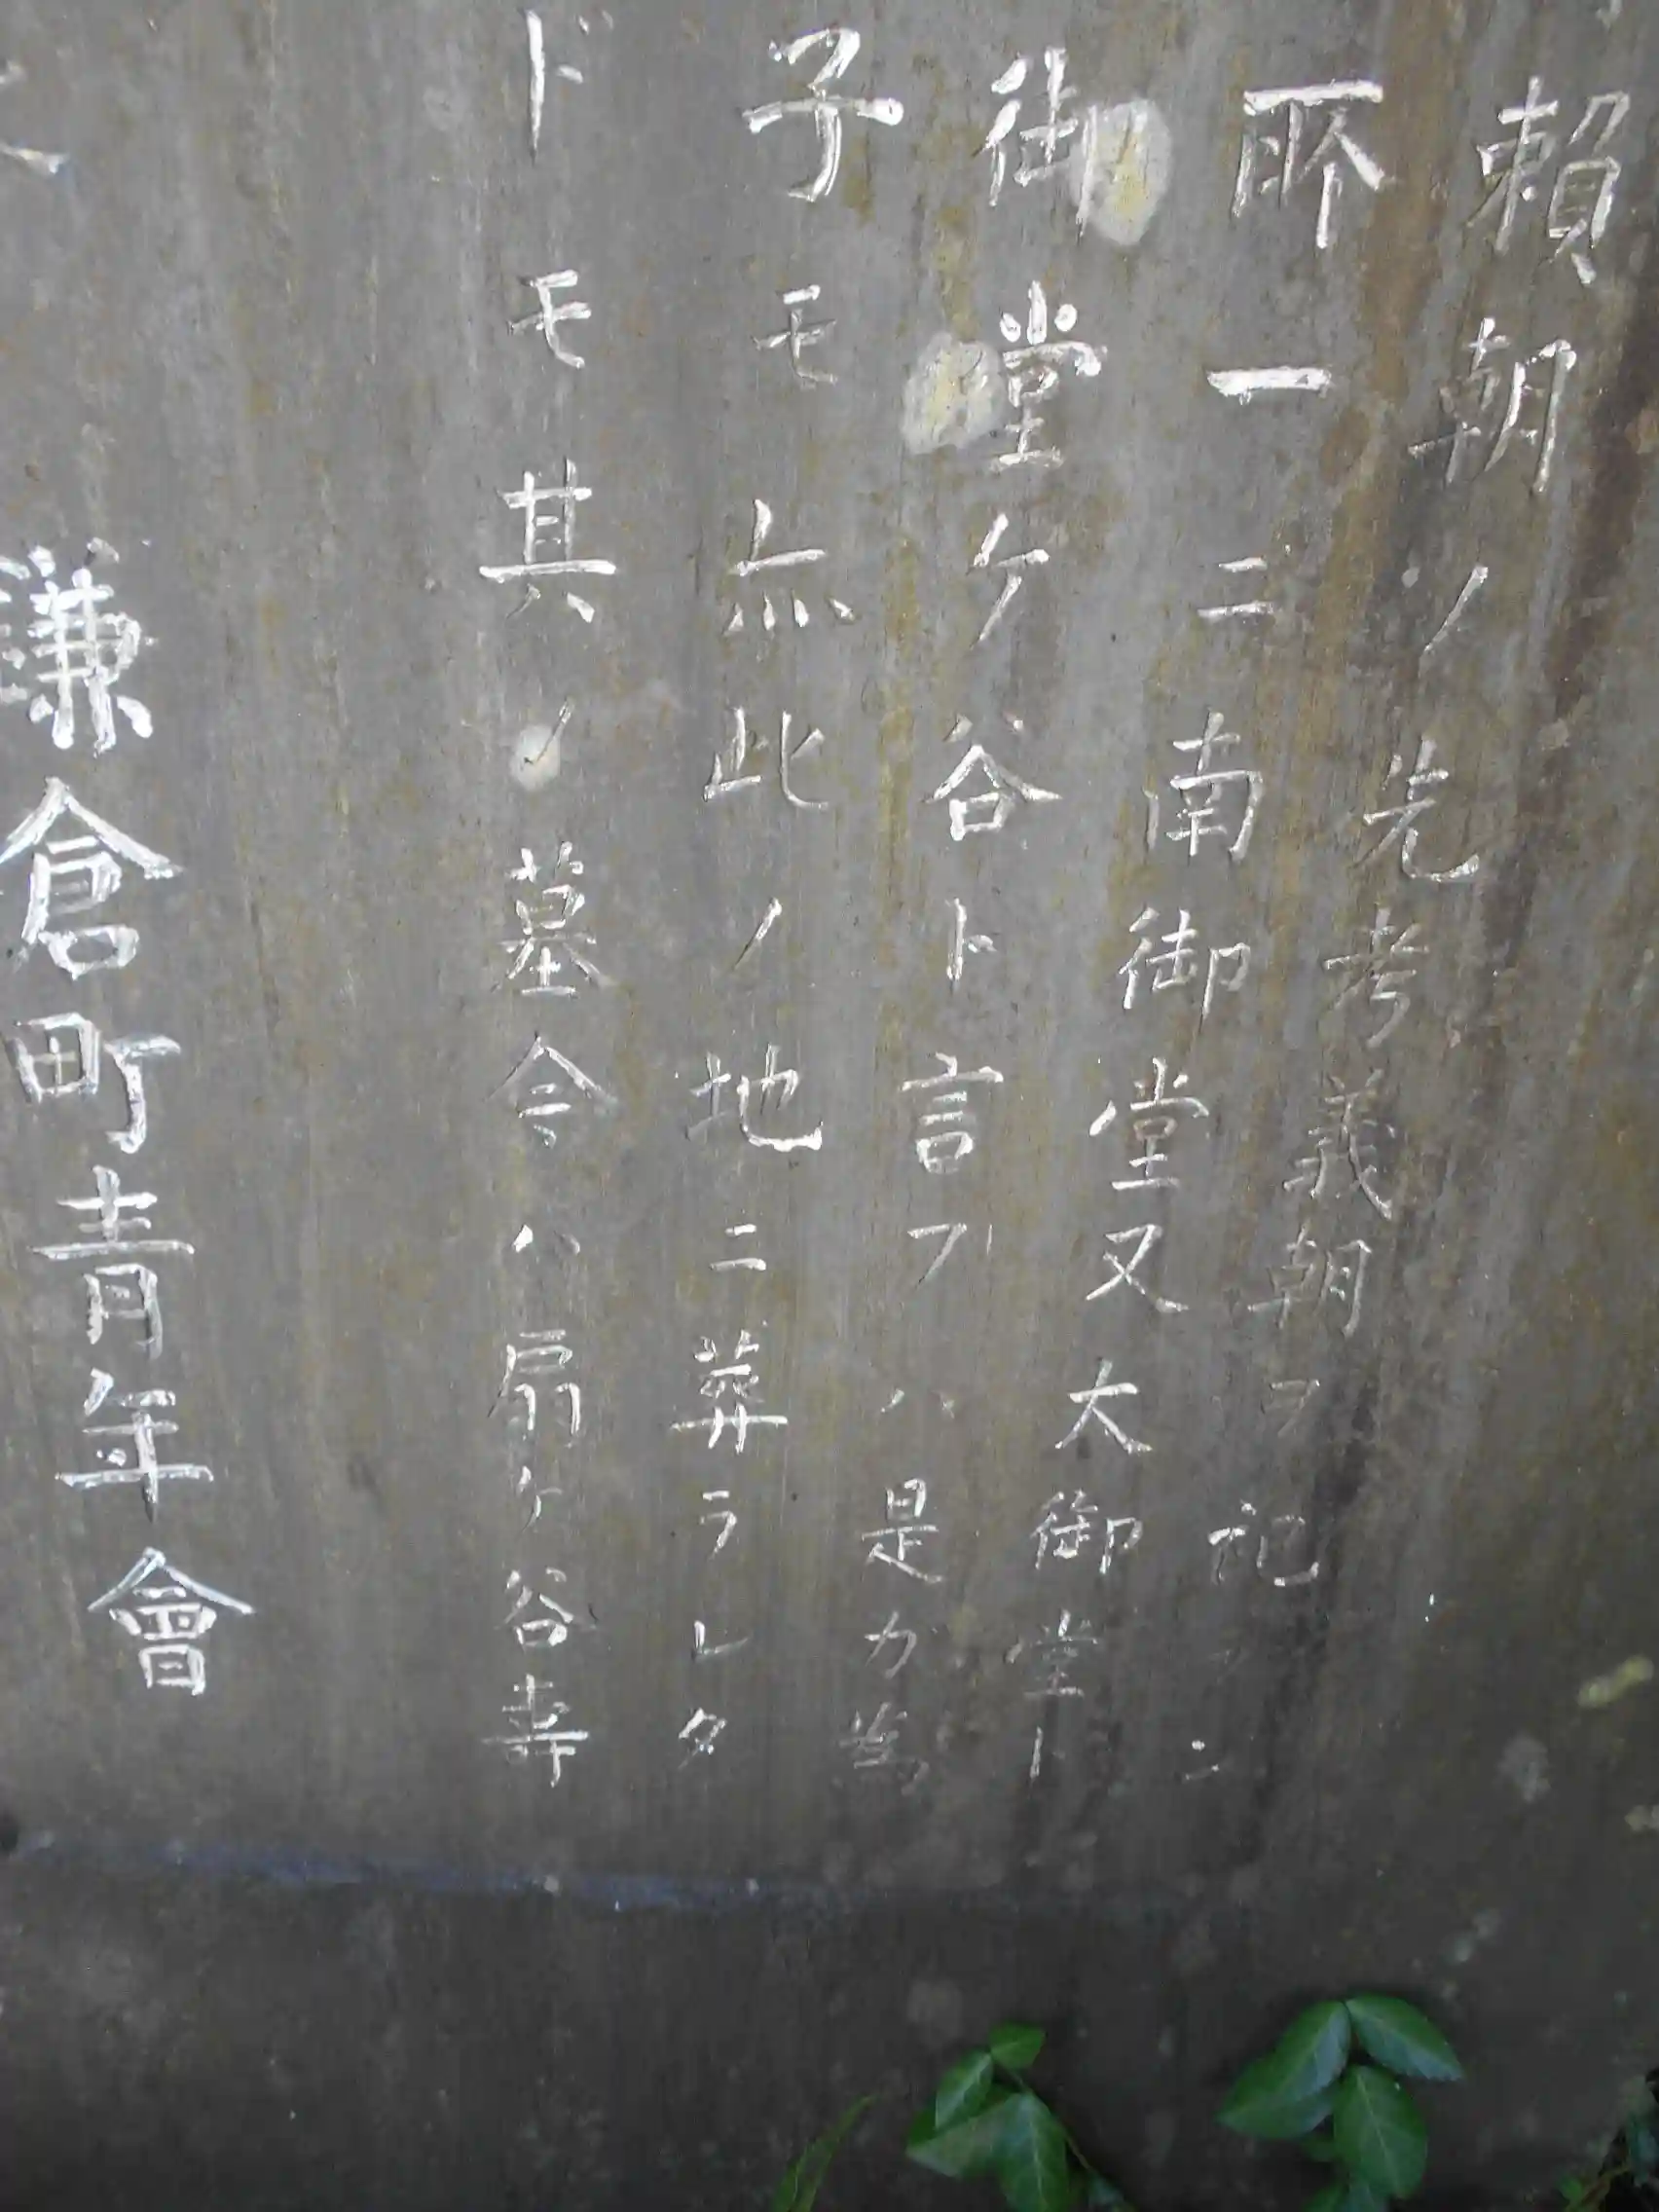 頼朝ノ先考義朝ヲ祀
所一ニ南御堂又大御堂ト
御堂ケ谷ト言フハ是カ為
子モ亦此ノ地ニ葬ラレタ
ドモ其ノ墓今ハ扇ケ谷壽
鎌倉町青年會